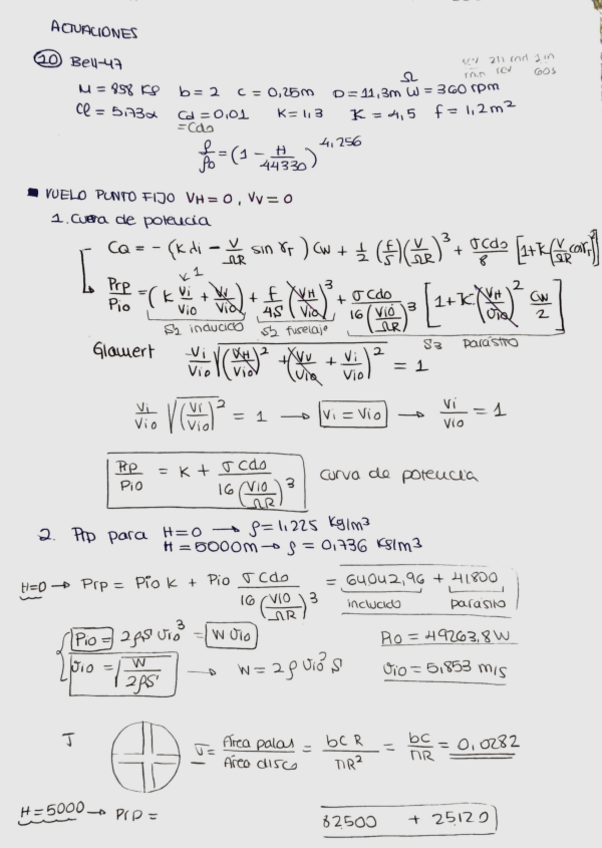 ACTUACIONES
20 Bell-47
rev 2π rad 1 min
min rev 60s
M = 858 Kg b = 2 c = 0,25m D = 11,3m Ω W = 360 rpm
Cl = 5,73α Cd = 0,01 K = 1,3 K = 4,5 f = 1,2m²
= Cdo
ρ/ρo = (1 - H/44330)^4,256
■ VUELO PUNTO FIJO VH = 0, VV = 0
1. Curva de potencia
CQ = -(K λi - V/ΩR sin γT) CW + 1/2 (f/S)(V/ΩR)³ + σCdo/8 [1+K(V/ΩR cos γT)²]
Prp/Pio = (K Vi/Vio + VV/Vio) + f/4S (VH/Vio)³ + σCdo/16(Vio/ΩR)³ [1+K(VH/Vio)² CW/2]
1
S1 inducido S2 fuselaje S3 parásito
Glauert Vi/Vio √((VH/Vio)² + (VV/Vio + Vi/Vio)²) = 1
Vi/Vio √(Vi/Vio)² = 1 → Vi = Vio → Vi/Vio = 1
Prp/Pio = K + σCdo/16(Vio/ΩR)³ curva de potencia
2. Prp para H=0 → ρ = 1,225 Kg/m3
H = 5000m → ρ = 0,736 Kg/m3
H=0 → Prp = Pio K + Pio σCdo/16(Vio/ΩR)³ = 64042,96 + 41800
inducido parásito
Pio = 2ρS Vio³ = W Vio Pio = 49263,8W
Vio = √(W/2ρS) → W = 2ρ Vio² S Vio = 5,853 m/s
σ σ = Área palas/Área disco = bCR/πR² = bc/πR = 0,0282
H=5000 → Prp = 82500 + 25120